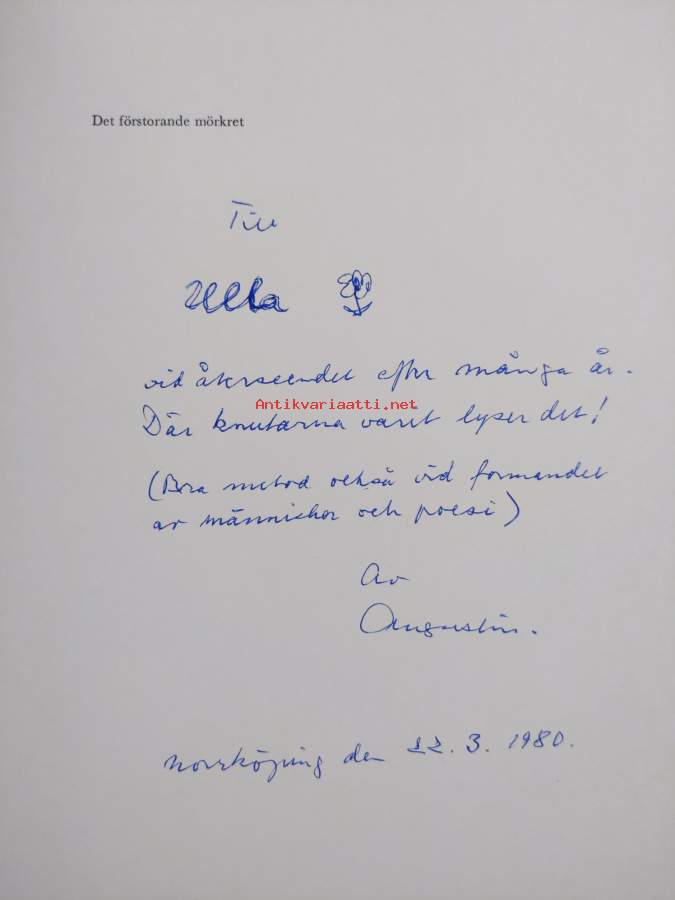 Det förstorande mörkret
Till
Ulla
vid återseendet efter många år.
Antikvariaatti.net
Där knutarna varit lyser det!
(Bra metod också vid formandet
av människor och poesi)
Av
Augustin.
Norrköping den 22.3.1980.